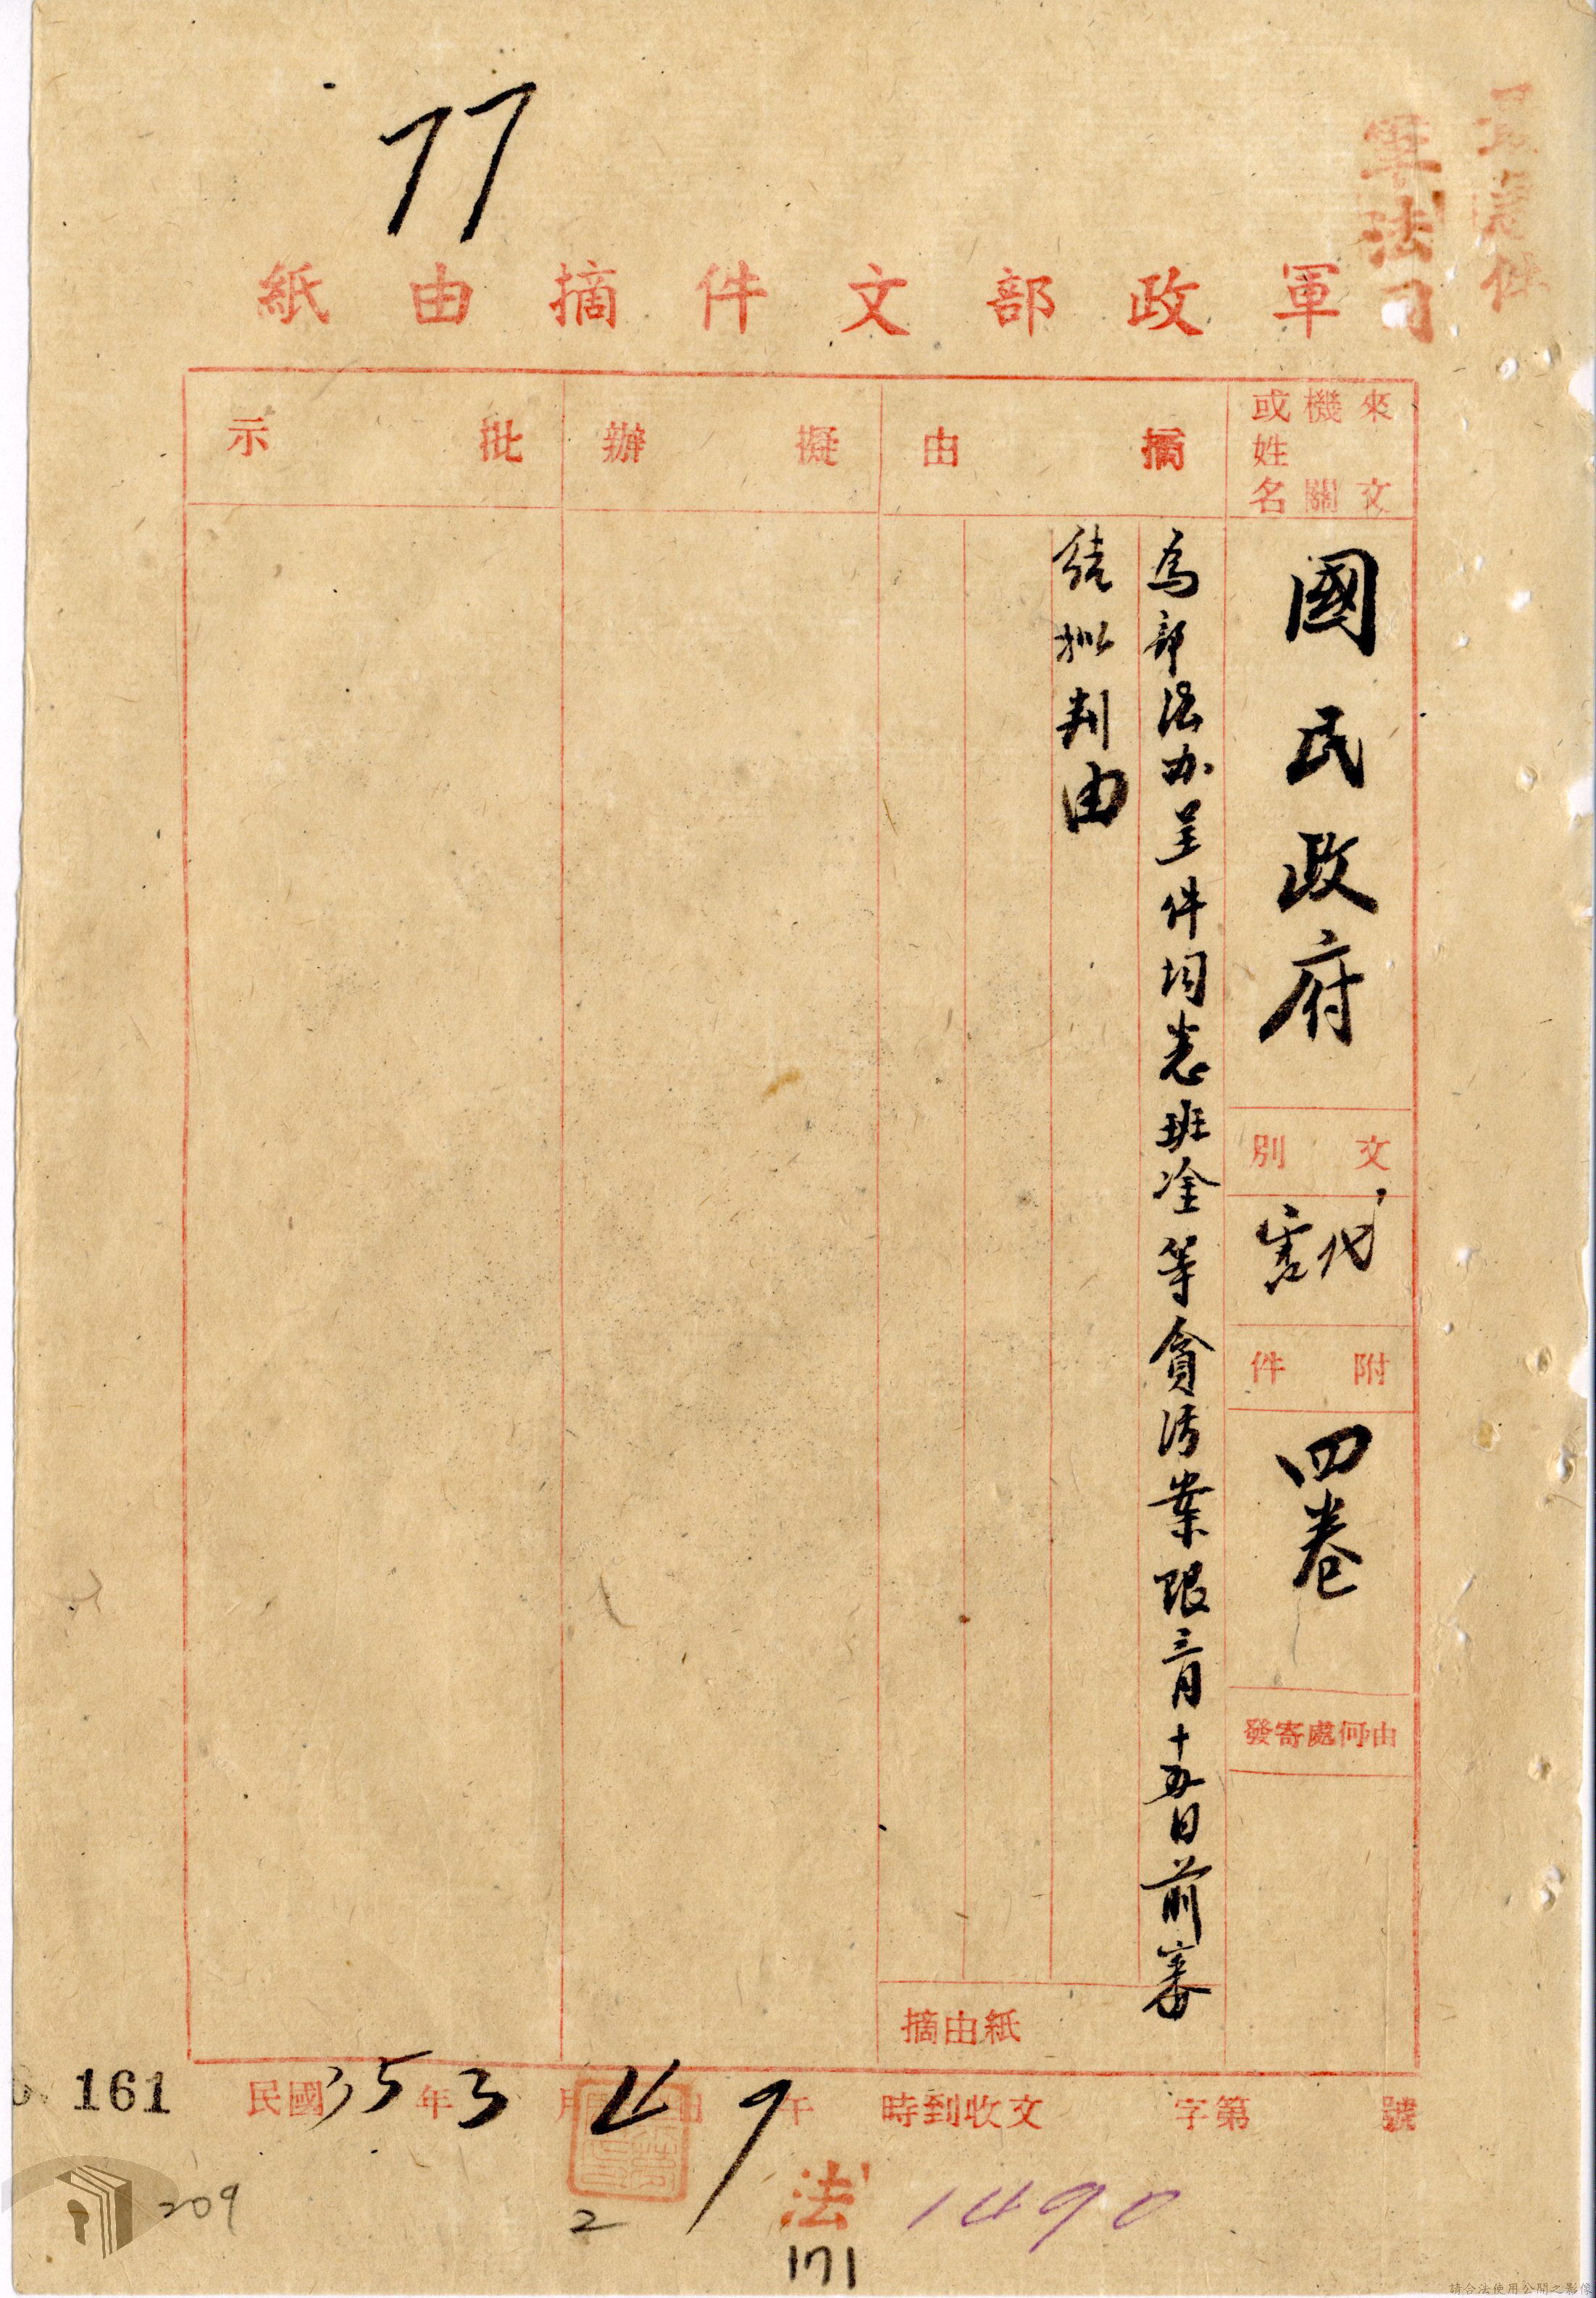 77
最速件
軍法司
軍政部文件摘由紙
來文機關或姓名
摘由
擬辦
批示
國民政府
文別
代電
附件
四卷
由何處寄發
為部法办呈件均悉班淦等貪污案限三月十五日前審
結拟判由
摘由紙
民國35年3月
午
時到收文
字第
號
161
209
2
法
1490
171
請合法使用公開之影像